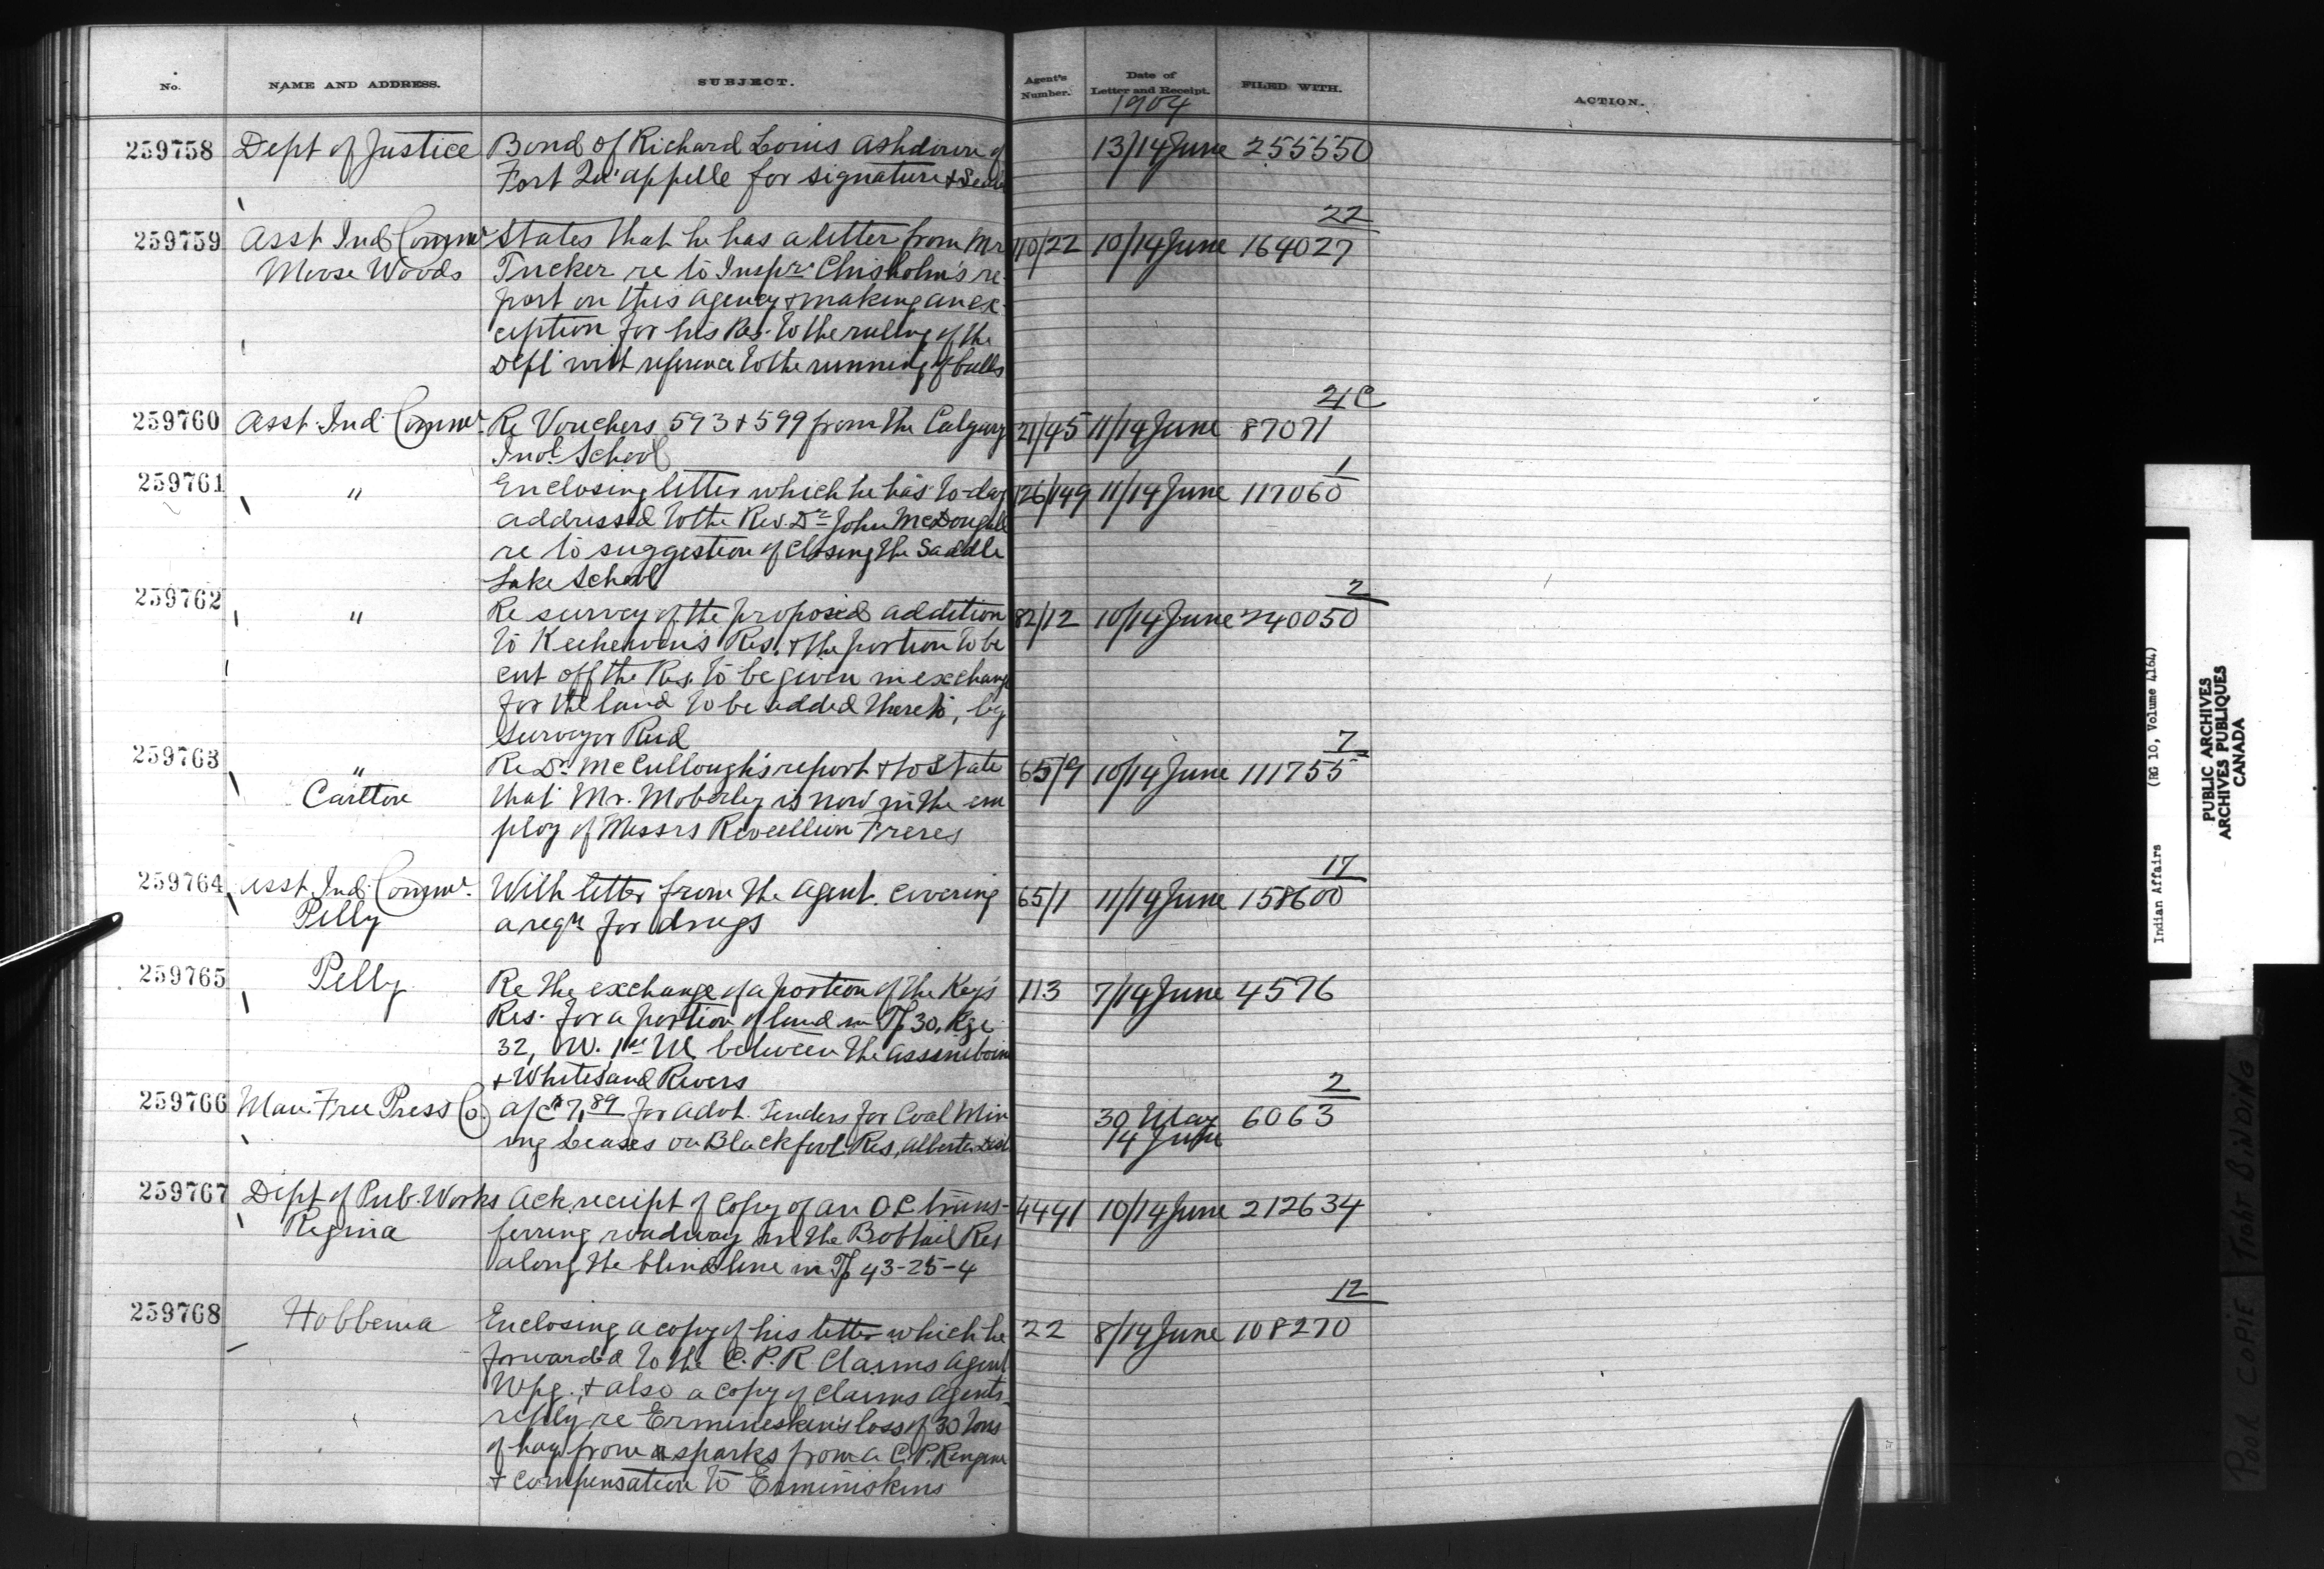 No. NAME AND ADDRESS. SUBJECT. Agent's Number. Date of Letter and Receipt. FILED WITH. ACTION.
1904
259758 Dept of Justice Bond of Richard Louis Ashdown of 13/14 June 255550
Fort Qu'appelle for signature & Seal
22
259759 Asst Ind Commr States that he has a letter from Mr 110/22 10/14 June 164027
Moose Woods Tucker re to Inspr. Chisholm's re
port on this agency & making an ex-
ception for his Res. to the ruling of the
Dept with reference to the running of bulls
259760 Asst. Ind Commr. Re Vouchers 593 & 599 from the Calgary 21/45 11/14 June 87071
Indl. School
1
259761 " Enclosing letter which he has to-day 126/149 11/14 June 117060
addressed to the Rev. Dr John McDougall
re to suggestion of closing the Saddle
Lake School
2
259762 " Re survey of the proposed addition 82/12 10/14 June 240050
to Keehewin's Res. & the portion to be
cut off the Res. to be given in exchange
for the land to be added thereto, by
Surveyor Reid
7
259763 " Re Dr. McCullough's report & to State 65/9 10/14 June 111755
Carlton that Mr. Moberley is now in the em
ploy of Messrs Revillion Freres
17
259764 Asst Ind. Commr. With letter from the agent covering 65/1 11/14 June 158600
Pelly a reqn for drugs
259765 Pelly Re the exchange of a portion of the Keys 113 7/14 June 4576
Res. for a portion of land in Tp 30, Rge
32, W. 1st M between the Assiniboine
& Whitesand Rivers
2
259766 Man. Free Press Co. a/c $7.89 for advt. Tenders for Coal Min 30 May 6063
ing Leases on Blackfoot Res, Alberta Dist 14 June
259767 Dept of Pub. Works Ack. receipt of copy of an O.C. trans- 4441 10/14 June 212634
Regina ferring roadway in the Bobtail Res
along the blind line in Tp 43-25-4
12
259768 Hobbema Enclosing a copy of his letter which he 22 8/14 June 108270
forwarded to the C.P.R. Claims Agent
Wpg. & also a copy of Claims Agents
reply re Ermineskin's loss of 30 tons
of hay from sparks from a C.P.R engine
& compensation to Erminiskins
Indian Affairs (RG 10, Volume 4164)
PUBLIC ARCHIVES
ARCHIVES PUBLIQUES
CANADA
POOR COPIE TIGHT BINDING